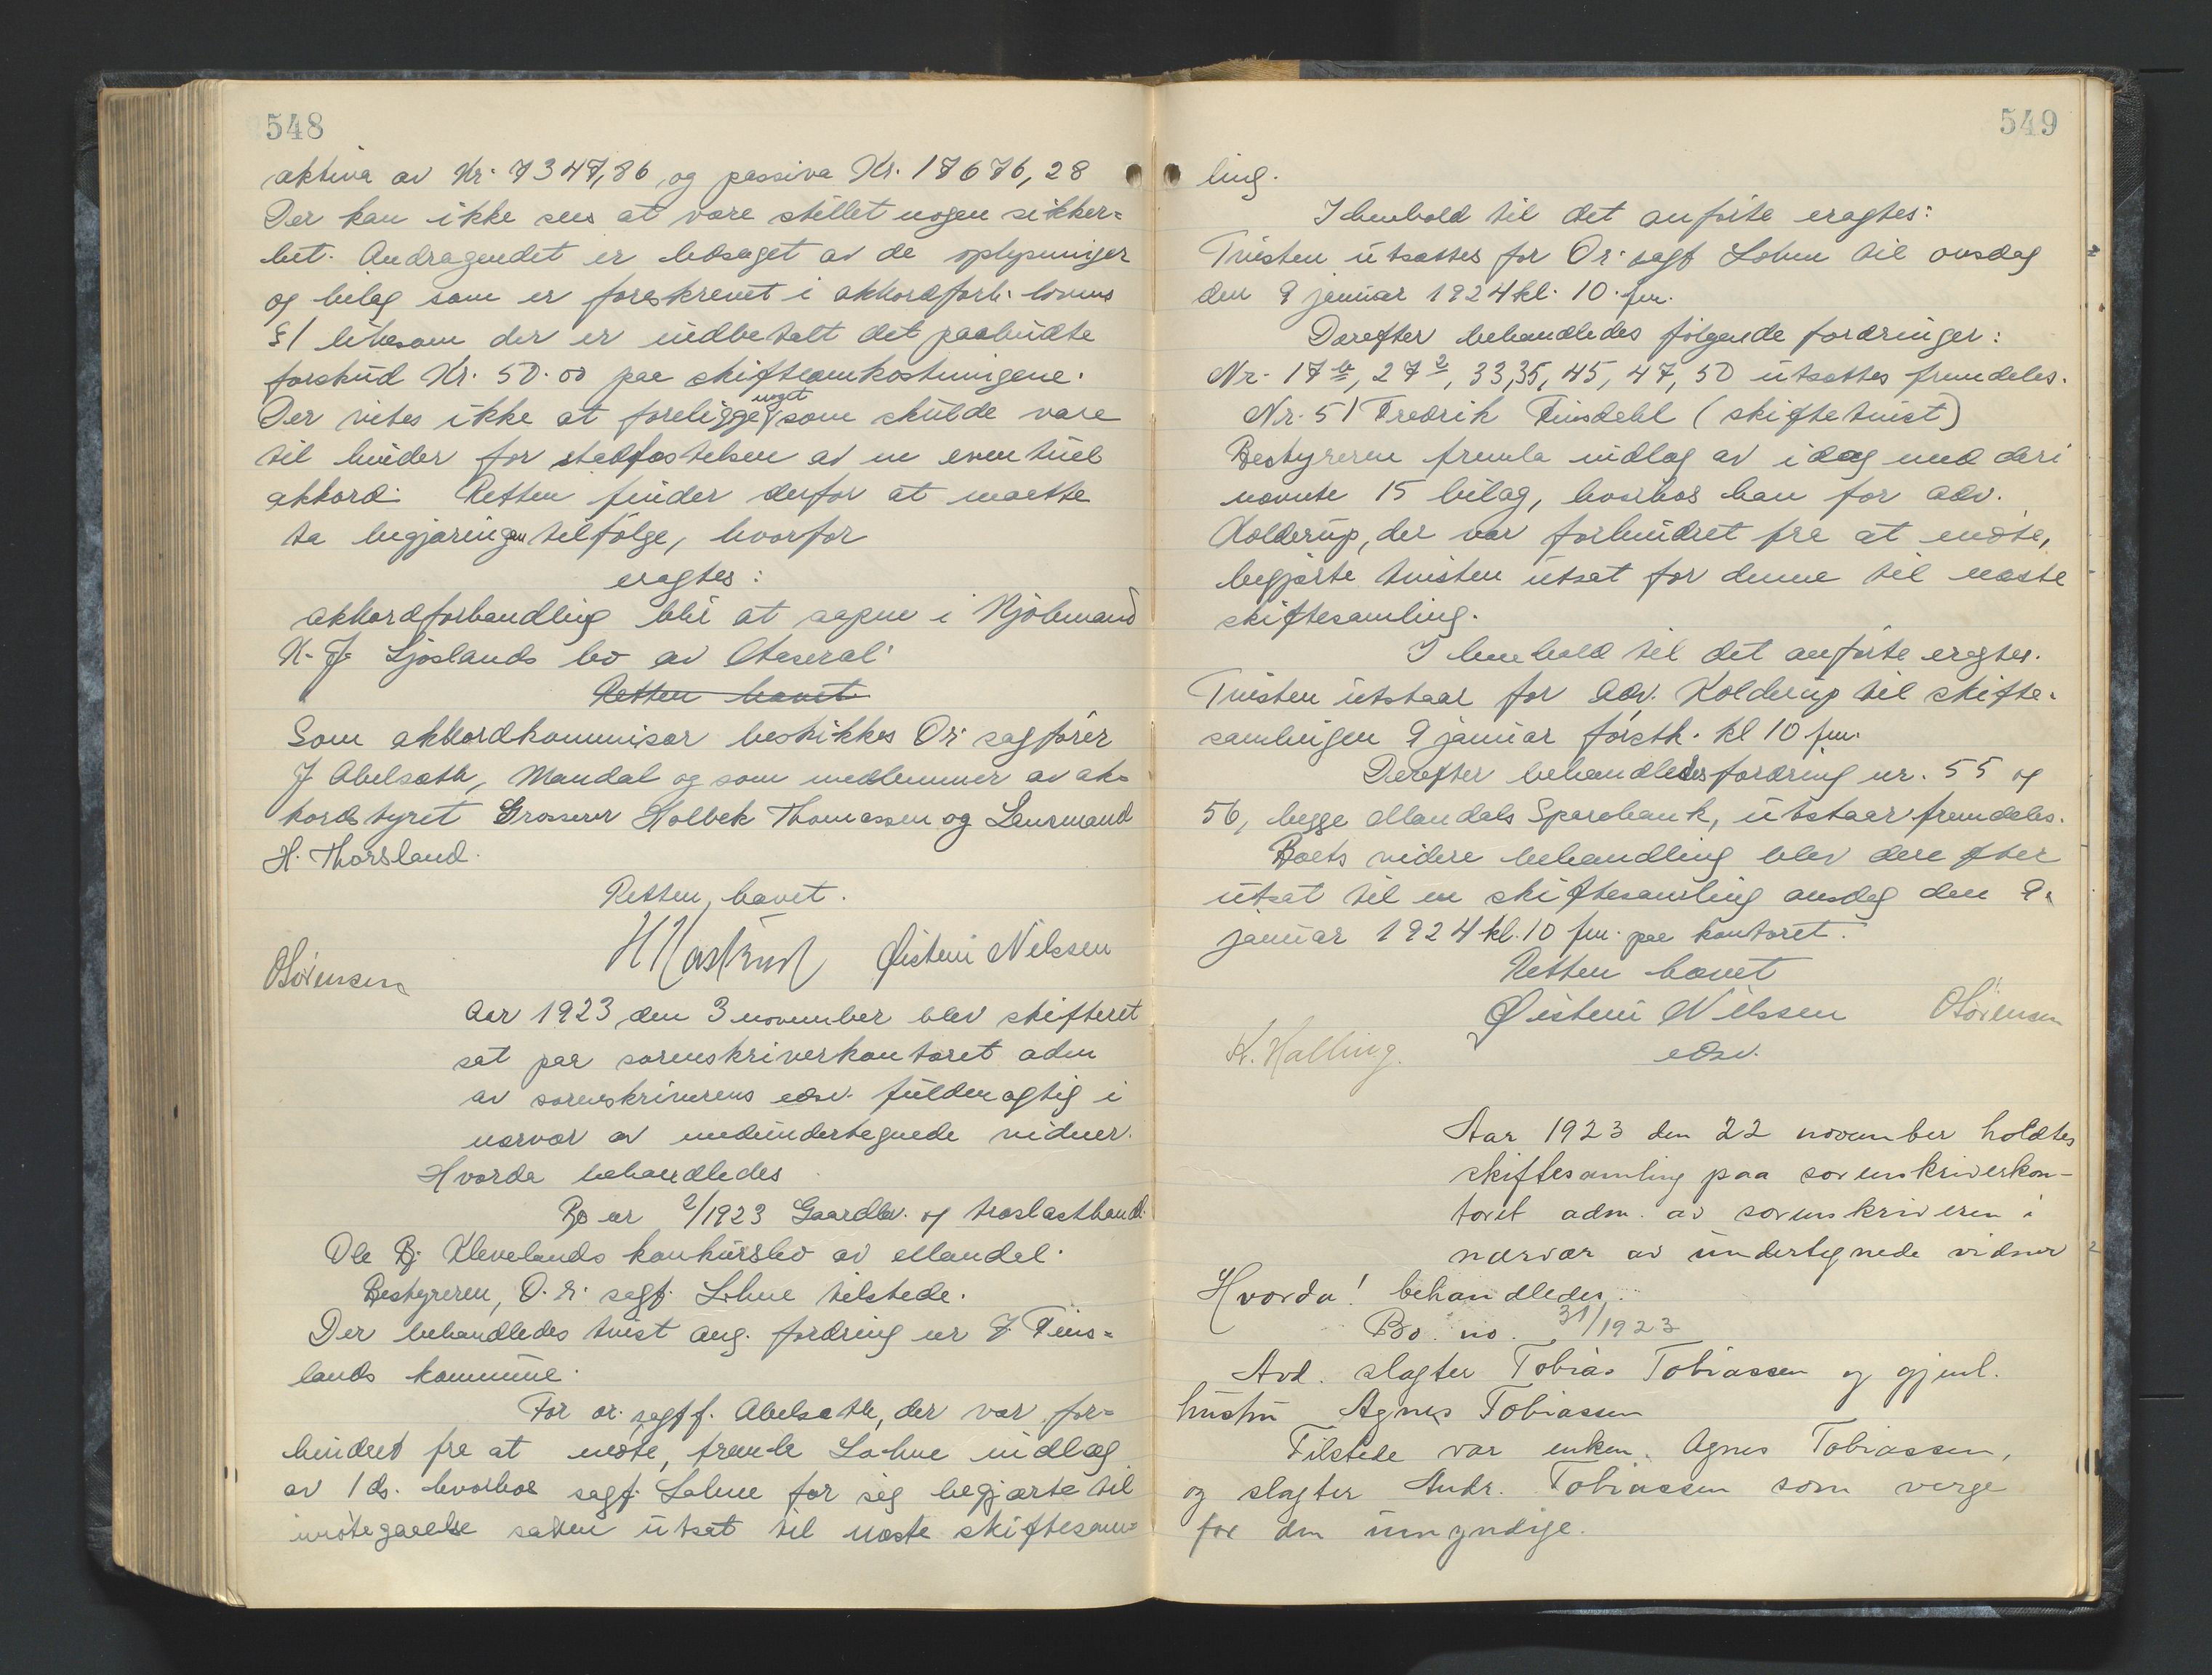 548
aktiva av Kr. 7347,86 og passiva Kr. 17676,28
Der kan ikke sees at være stillet nogen sikker=
het. Andragendet er ledsaget av de oplysninger
og bilag som er foreskrevet i akkordforh. lovens
§1 likesom der er indbetalt det paabudte
forskud Kr. 50.00 paa skifteomkostningene.
Der vites ikke at foreligge noget som skulde være
til hinder for stadfæstelsen av en eventuel
akkord. Retten finder derfor at maatte
ta begjæringen tilfølge, hvorfor
eragtes:
akkordforhandling blir at aapne i Kjøbmand
K. J. Ljoslands bo av Aaseral.
Retten hævet
Som akkordkommisær beskikkes Or. sagfører
J Abelseth, Mandal og som medlemmer av ak=
kordstyret Grosserer Holbek Thomassen og Lensmand
H. Thorsland.
Retten hævet.
OSørensen Øistein Nilssen
Aar 1923 den 3 november blev skifteret
sat paa sorenskriverkontoret adm
av sorenskriverens edsv. fuldmægtig i
nærvær av medundertegnede vidner.
Hvorda behandledes
Bo nr 2/1923 Gaardbr. og trælasthandl.
Ole Bj Klevelands konkursbo av Mandal.
Bestyreren, O.r. sagf. Lohne tilstede.
Der behandledes tvist ang. fordring nr 7. Fins=
lands kommune.
For or. sagf. Abelseth, der var for=
hindret fra at møte, fremla Lohne indlæg
av 1 ds. hvorhos sagf. Lohne for sig begjærte til
imøtegaaelse saken utsat til næste skiftesam=
549
ling.
I henhold til det anførte eragtes:
Tvisten utsættes for Or. sagf Lohne til onsdag
den 9 januar 1924 kl. 10. fm.
Derefter behandledes følgende fordringer:
Nr. 17b, 27a, 33,35, 45, 47, 50 utsættes fremdeles.
Nr. 51 Fredrik Finsdahl (skiftetvist)
Bestyreren fremla indlæg av idag med deri
nævnte 15 bilag, hvorhos han for adv.
Kolderup, der var forhindret fra at møte,
begjærte tvisten utsat for denne til næste
skiftesamling.
I henhold til det anførte eragtes.
Tvisten utstaar for adv. Kolderup til skifte=
samlingen 9 januar førstk. kl 10 fm.
Derefter behandledes fordring nr. 55 og
56, begge Mandals Sparebank, utstaar fremdeles.
Boets videre behandling blev derefter
utsat til en skiftesamling onsdag den 9.
januar 1924 kl. 10 fm. paa kontoret.
Retten hævet
Øistein Nilssen OSørensen
K. Halling. edsv.
Aar 1923 den 22 november holdtes
skiftesamling paa sorenskriverkon-
toret adm. av sorenskriveren i
nærvær av undertegnede vidner
Hvorda! behandledes:
Bo. no. 31/1923
Avd. slagter Tobias Tobiassen og gjenl.
hustru Agnes Tobiassen
Tilstede var enken Agnes Tobiassen,
og slagter Andr. Tobiassen som verge
for den umyndige.